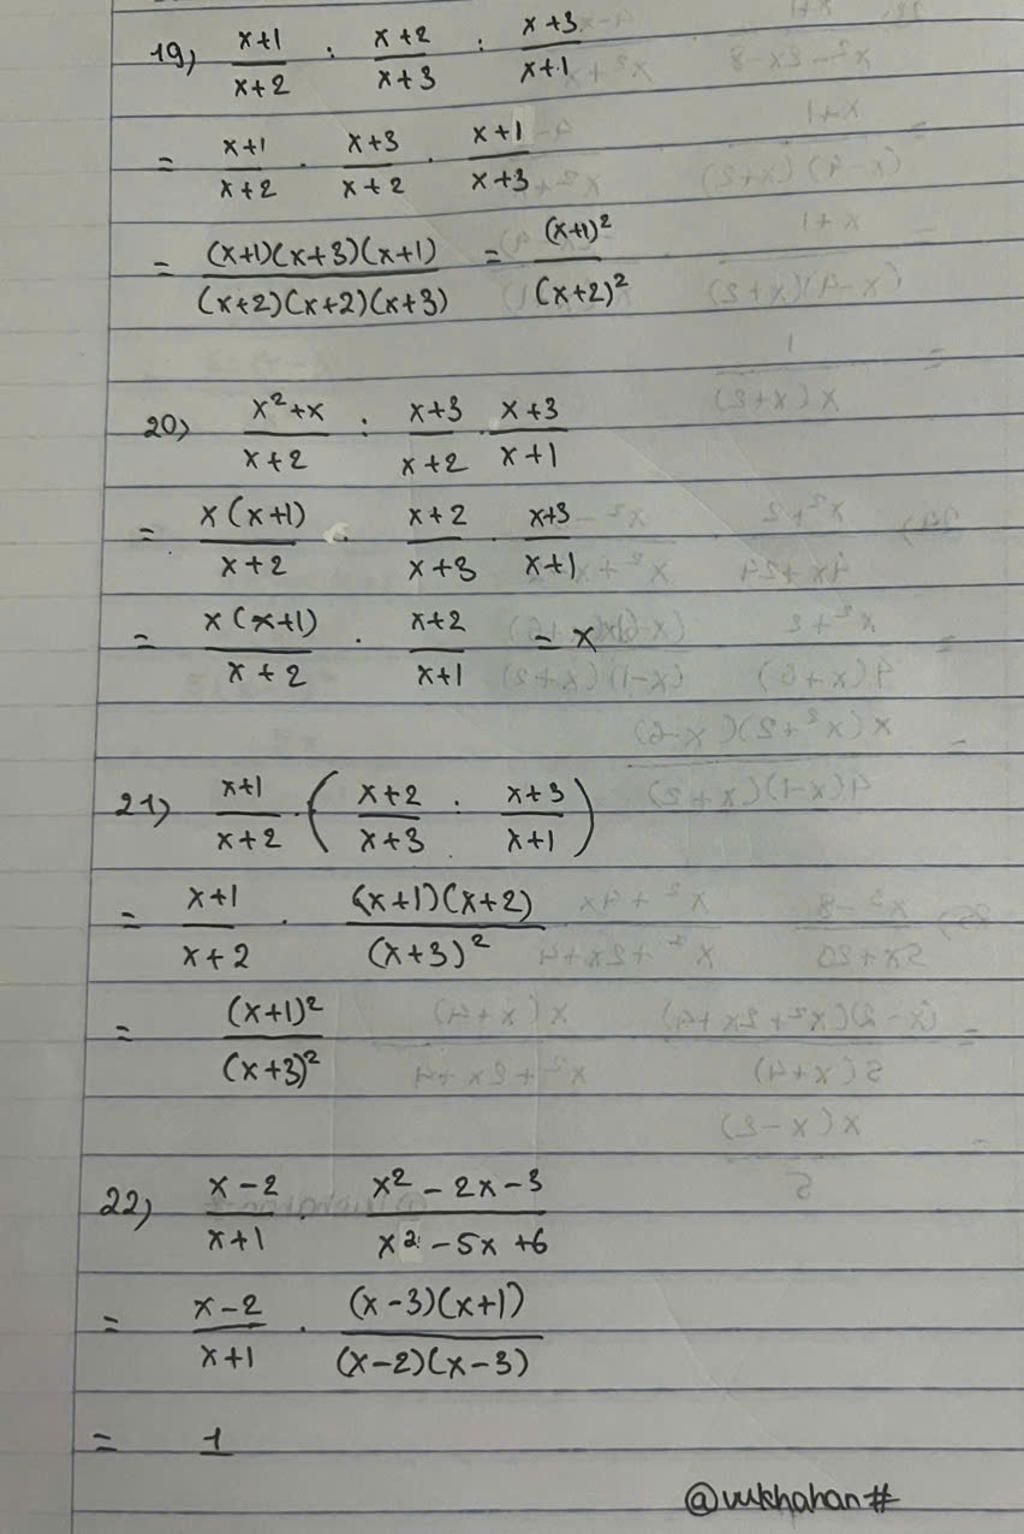 19) (x+1)/(x+2) : (x+2)/(x+3) : (x+3)/(x+1)
= (x+1)/(x+2) · (x+3)/(x+2) · (x+1)/(x+3)
= ((x+1)(x+3)(x+1))/((x+2)(x+2)(x+3)) = (x+1)²/(x+2)²
20) (x²+x)/(x+2) : (x+3)/(x+2) · (x+3)/(x+1)
= x(x+1)/(x+2) · (x+2)/(x+3) · (x+3)/(x+1)
= x(x+1)/(x+2) · (x+2)/(x+1) = x
21) (x+1)/(x+2) · ((x+2)/(x+3) : (x+3)/(x+1))
= (x+1)/(x+2) · ((x+1)(x+2))/(x+3)²
= (x+1)²/(x+3)²
22) (x-2)/(x+1) · (x²-2x-3)/(x²-5x+6)
= (x-2)/(x+1) · ((x-3)(x+1))/((x-2)(x-3))
= 1
@vukhahan#